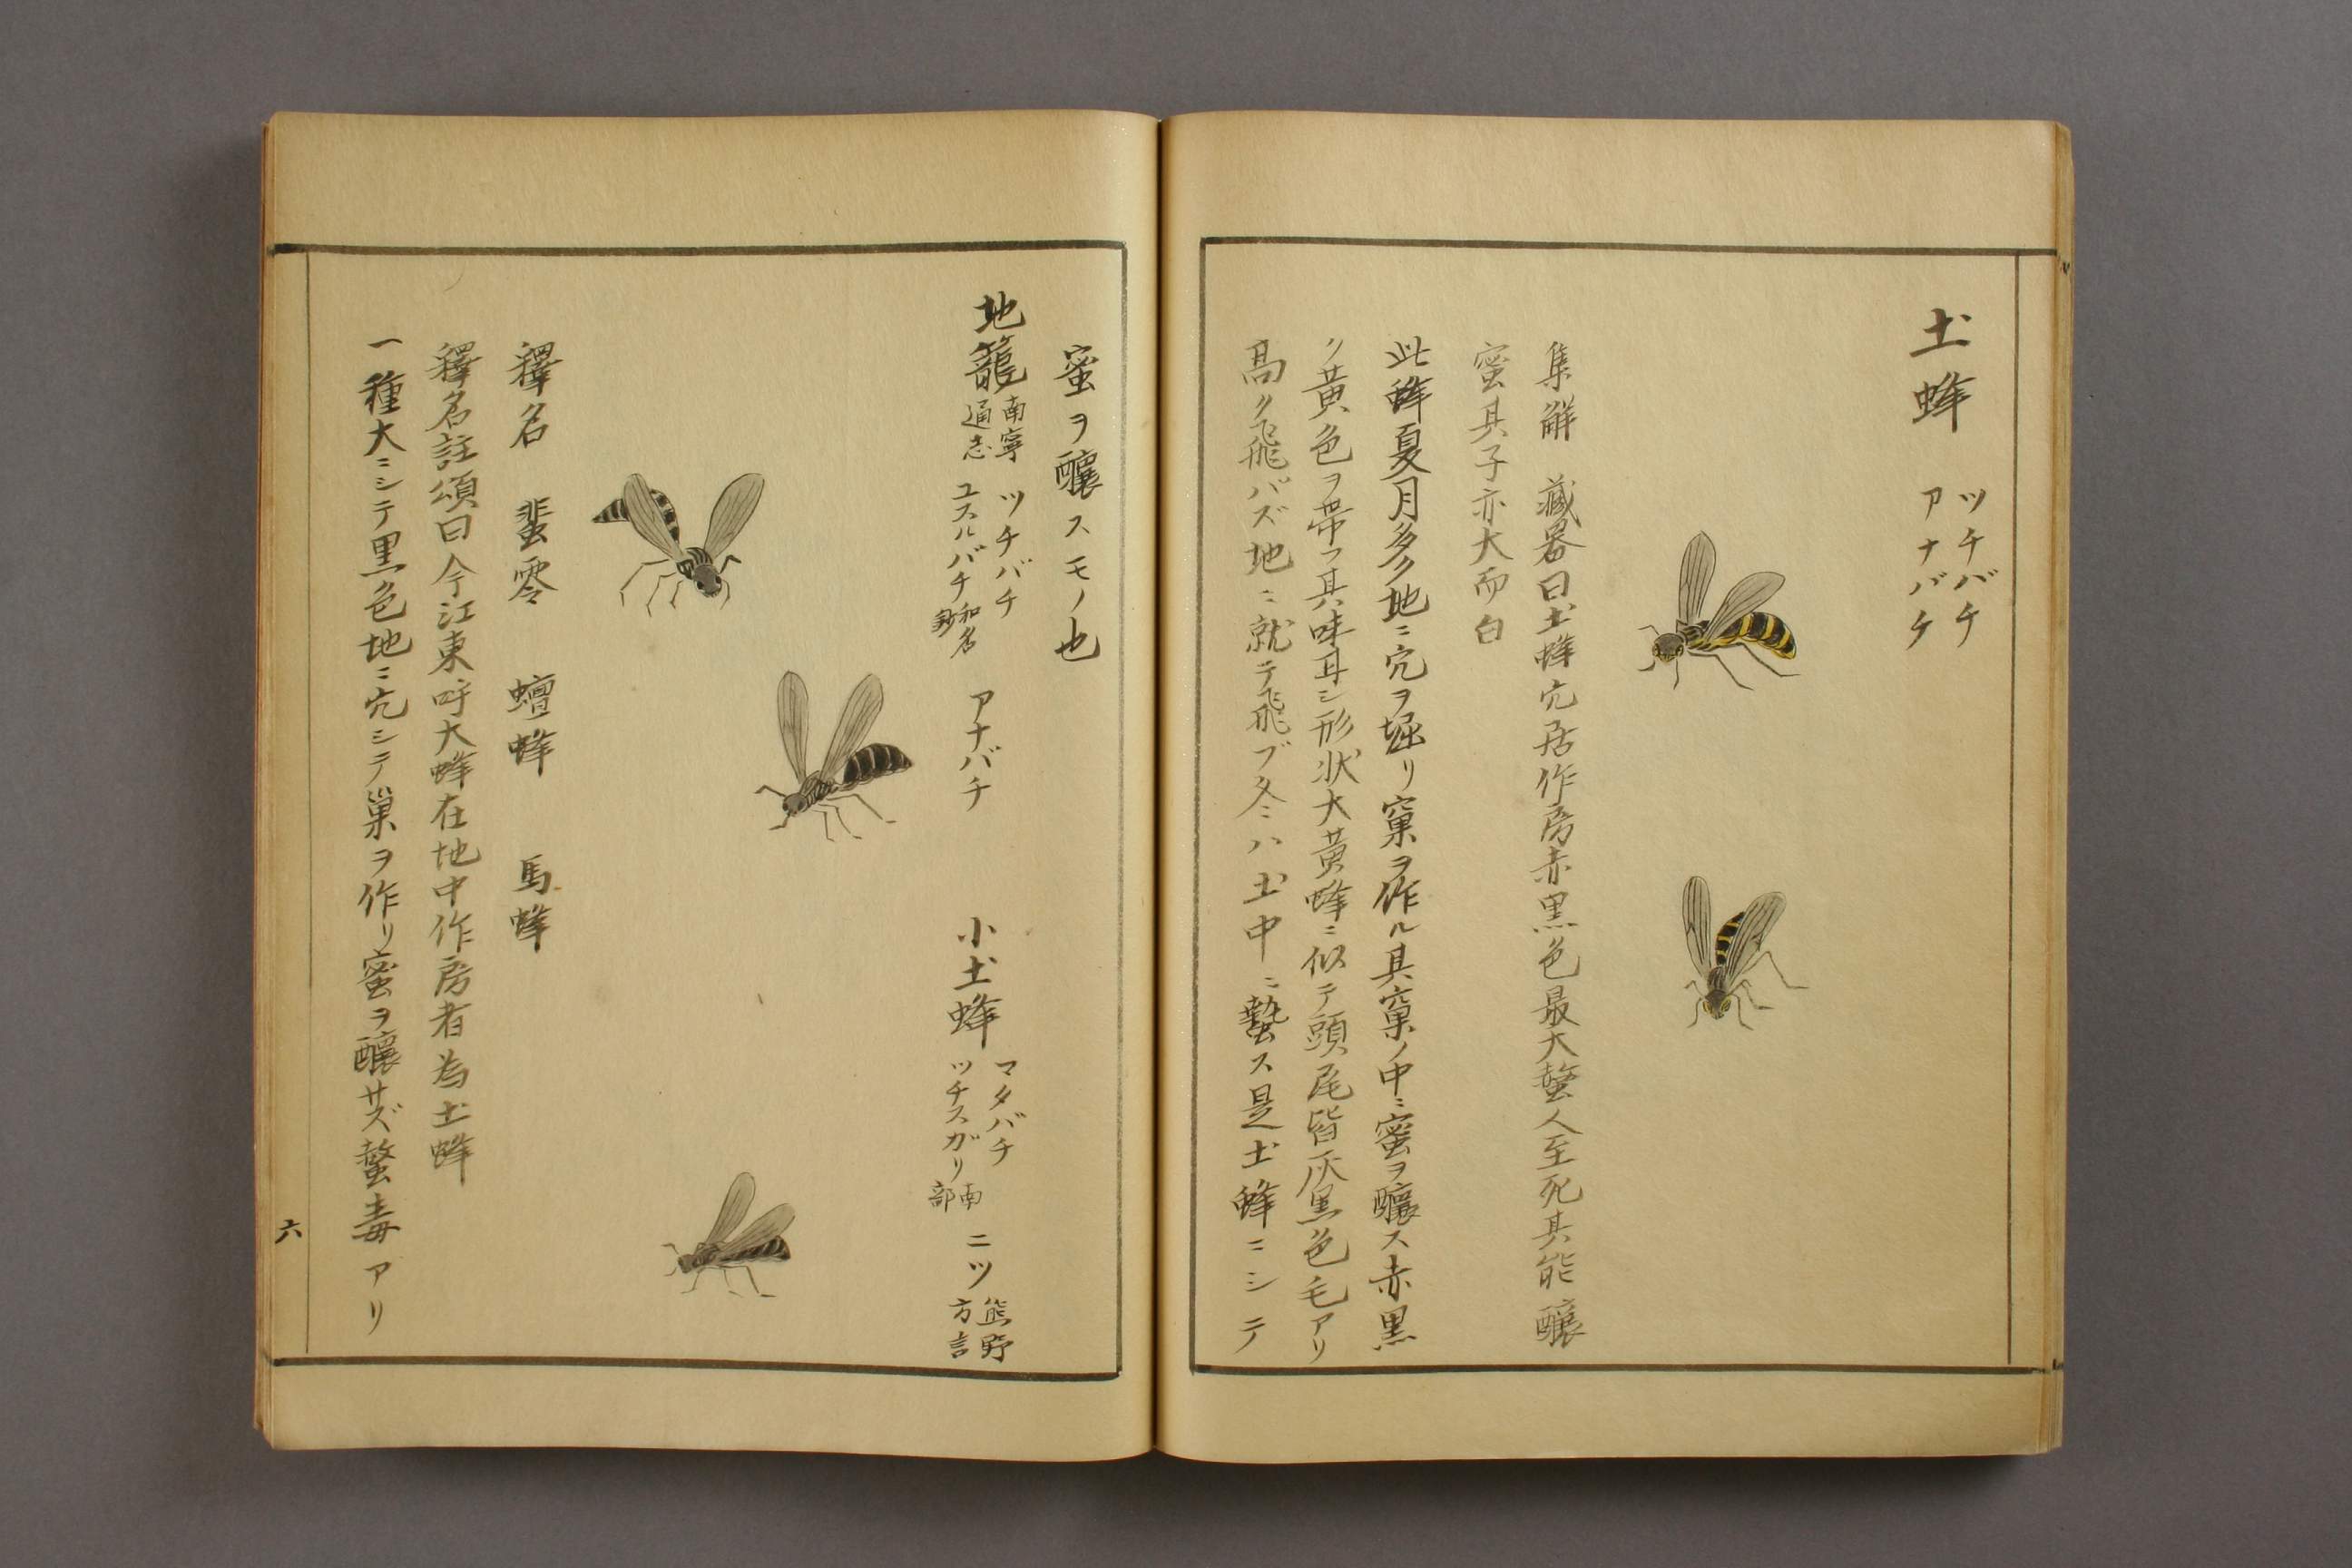 土蜂
ツチバチ
アナバチ
集解 藏畧曰土蜂穴居作房赤黒色最大螫人至死其能釀
蜜其子亦大而白
此蜂夏月多ク地ニ穴ヲ堀リ窠ヲ作ル其窠ノ中ニ蜜ヲ釀ス赤黒
ク黄色ヲ帯フ其味耳シ形状大黄蜂ニ似テ頭尾皆灰黒色毛アリ
髙ク飛バズ地ニ就テ飛ブ冬ハ土中ニ蟄ス是土蜂ニシテ
蜜ヲ釀スモノ也
地籠 南寧通志 ツチバチ ユスルバチ 和名鈔 アナバチ
小土蜂 マタバチ ツチスガリ 南部 ニツ 熊野方言
釋名 蜚零 蟺蜂 馬蜂
釋名註頌曰今江東呼大蜂在地中作房者為土蜂
一種大ニシテ黒色地ニ穴シテ巣ヲ作リ蜜ヲ釀サズ螫毒アリ
六